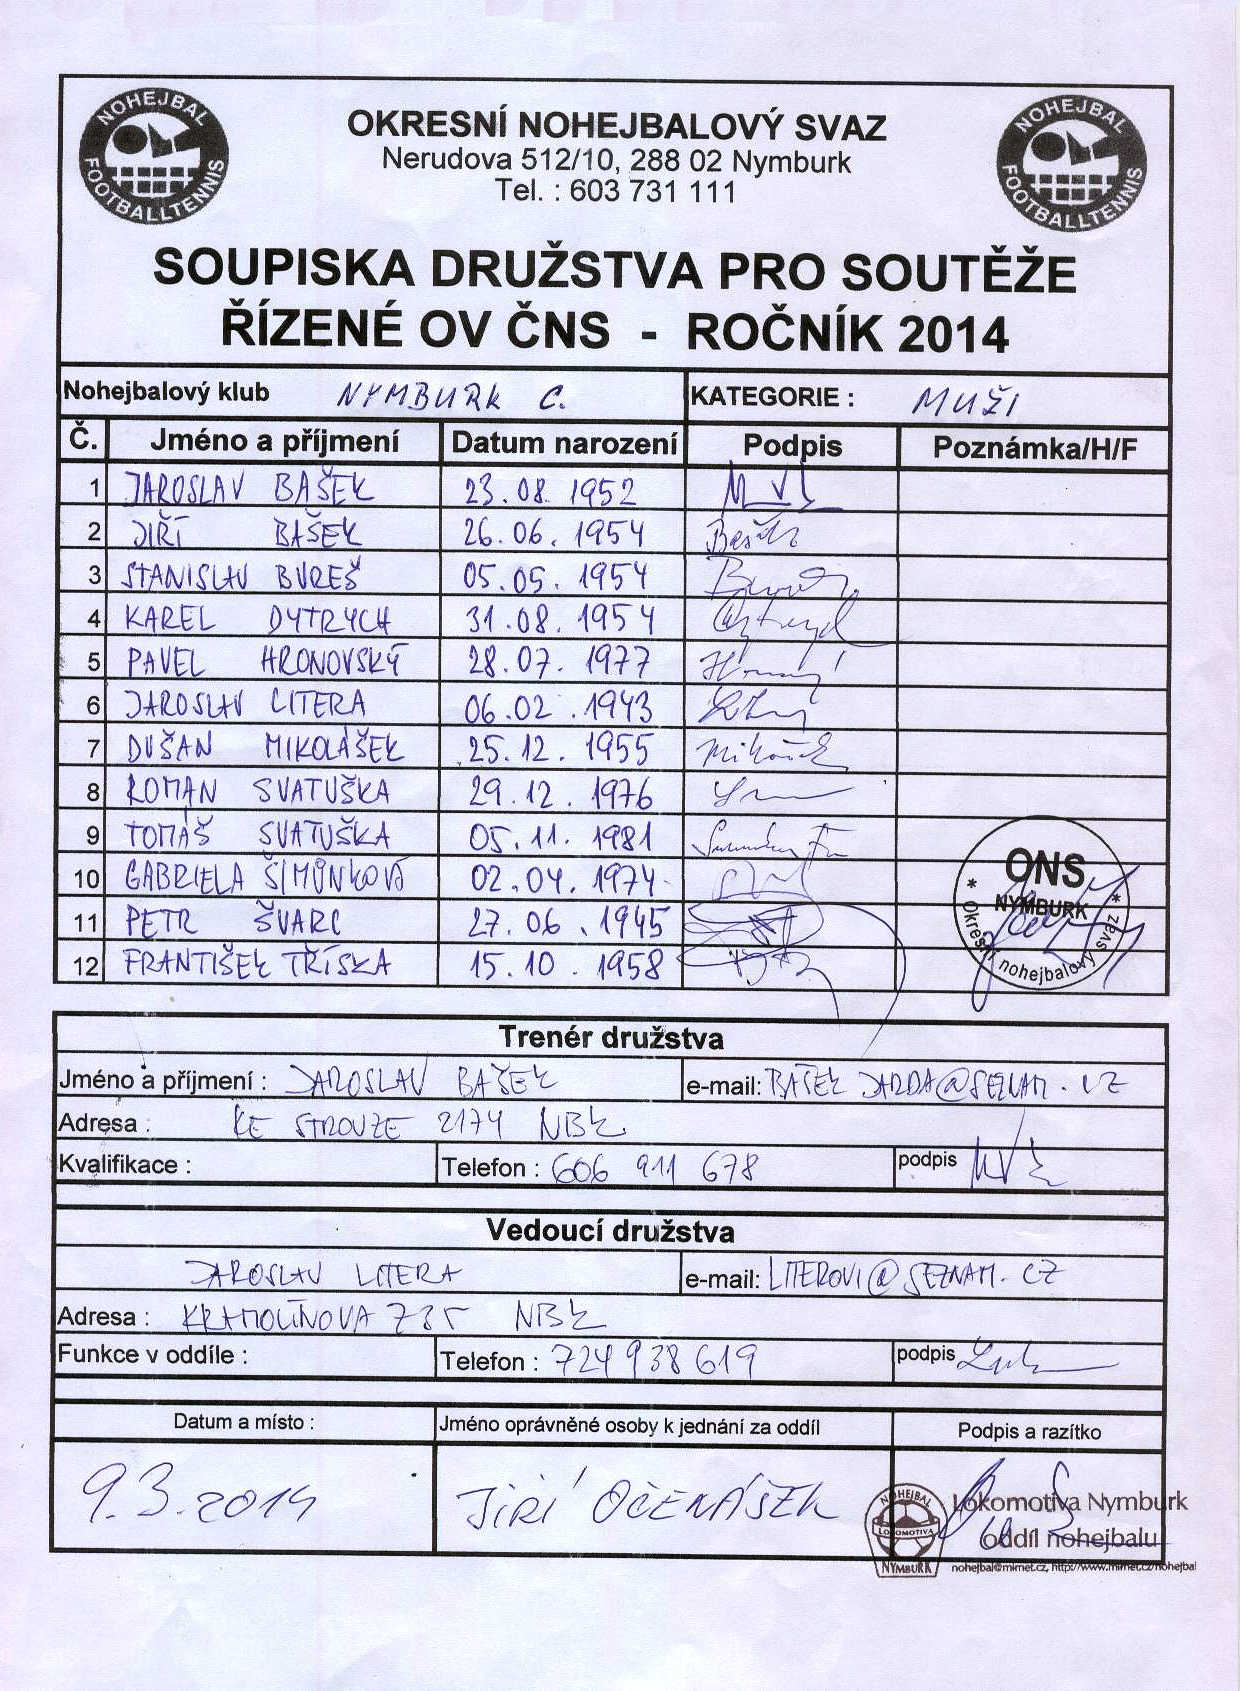 NOHEJBAL FOOTBALLTENNIS
OKRESNÍ NOHEJBALOVÝ SVAZ
Nerudova 512/10, 288 02 Nymburk
Tel. : 603 731 111
NOHEJBAL FOOTBALLTENNIS
SOUPISKA DRUŽSTVA PRO SOUTĚŽE
ŘÍZENÉ OV ČNS - ROČNÍK 2014
Nohejbalový klub NYMBURK C. KATEGORIE : MUŽI
Č. Jméno a příjmení Datum narození Podpis Poznámka/H/F
1 JAROSLAV BAŠEK 23.08.1952
2 JIŘÍ BAŠEK 26.06.1954
3 STANISLAV BUREŠ 05.05.1954
4 KAREL DYTRYCH 31.08.1954
5 PAVEL HRONOVSKÝ 28.07.1977
6 JAROSLAV LITERA 06.02.1943
7 DUŠAN MIKOLÁŠEK 25.12.1955
8 ROMAN SVATUŠKA 29.12.1976
9 TOMÁŠ SVATUŠKA 05.11.1981
10 GABRIELA ŠIMŮNKOVÁ 02.04.1974
11 PETR ŠVARC 27.06.1945
12 FRANTIŠEK TŘÍSKA 15.10.1958
ONS
NYMBURK
* Okresní nohejbalový svaz *
Trenér družstva
Jméno a příjmení : JAROSLAV BAŠEK e-mail: BAŠEK JARDA@SEZNAM.CZ
Adresa : KE STROUZE 2174 NBK
Kvalifikace : Telefon : 606 911 678 podpis
Vedoucí družstva
JAROSLAV LITERA e-mail: LITEROVI@SEZNAM.CZ
Adresa : KRAMOLÍNOVA 735 NBK
Funkce v oddíle : Telefon : 724 938 619 podpis
Datum a místo : Jméno oprávněné osoby k jednání za oddíl Podpis a razítko
9.3.2014 JIŘÍ OČENÁŠEK
NOHEJBAL LOKOMOTIVA NYMBURK
Lokomotiva Nymburk
oddíl nohejbalu
nohejbal@mirnet.cz, http://www.mirnet.cz/nohejbal